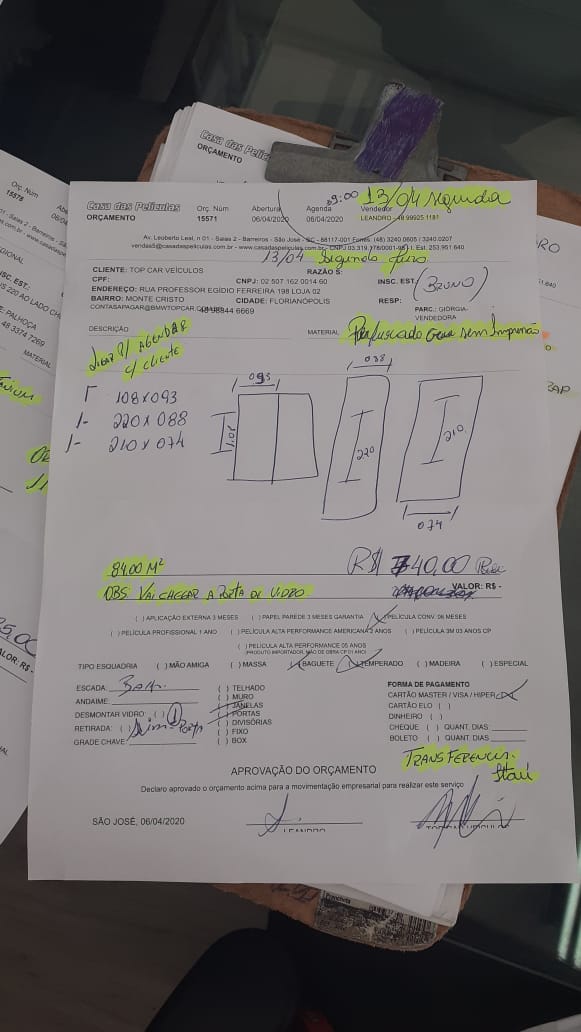 Casa das Películas
ORÇAMENTO
Orç. Núm
15575
Casa das Películas Orç. Núm Abertura Agenda Vendedor
09:00 13/04 segunda
ORÇAMENTO 15571 06/04/2020 06/04/2020 LEANDRO - 48 99925 1181
Av. Leoberto Leal, n 01 - Salas 2 - Barreiros - São José - SC - 88117-001 Fones: (48) 3240 0605 / 3240.0207
vendas5@casadaspeliculas.com.br - www.casadaspeliculas.com.br - CNPJ 03.319.776/0001-95 I. Est. 253.951.640
13/04 Segundo furo
CLIENTE: TOP CAR VEÍCULOS RAZÃO S:
CPF: CNPJ: 02 507 162 0014 60 INSC. EST:
(BRUNO)
ENDEREÇO: RUA PROFESSOR EGÍDIO FERREIRA 198 LOJA 02
BAIRRO: MONTE CRISTO CIDADE: FLORIANÓPOLIS RESP:
48 98844 6669
PARC.: GIORGIA-
VENDEDORA
DESCRIÇÃO MATERIAL:
Perfurado sem Impressão
LIGAR P/ AGENDAR
C/ CLIENTE
108x093
220x088
210x074
093
108
088
220
210
074
84,00 M²
R$ 740,00
OBS: VAI CHEGAR A PORTA DE VIDRO
VALOR: R$ -
( ) APLICAÇÃO EXTERNA 3 MESES ( ) PAPEL PAREDE 3 MESES GARANTIA ( ) PELÍCULA CONV. 06 MESES
( ) PELÍCULA PROFISSIONAL 1 ANO ( ) PELÍCULA ALTA PERFORMANCE AMERICANA 2 ANOS ( ) PELÍCULA 3M 03 ANOS CP
( ) PELÍCULA ALTA PERFORMANCE 05 ANOS
(PRODUTO IMPORTADOR, MÃO DE OBRA CP 01 ANO)
TIPO ESQUADRIA ( ) MÃO AMIGA ( ) MASSA ( ) BAGUETE ( ) TEMPERADO ( ) MADEIRA ( ) ESPECIAL
ESCADA:
ANDAIME:
DESMONTAR VIDRO: ( ) 1
RETIRADA: ( ) Sim - Porta
GRADE CHAVE:
( ) TELHADO
( ) MURO
( ) JANELAS
( ) PORTAS
( ) DIVISÓRIAS
( ) FIXO
( ) BOX
FORMA DE PAGAMENTO
CARTÃO MASTER / VISA / HIPER ( )
CARTÃO ELO ( )
DINHEIRO ( )
CHEQUE ( ) QUANT. DIAS:
BOLETO ( ) QUANT. DIAS
TRANSFERENCIA
Itaú
APROVAÇÃO DO ORÇAMENTO
Declaro aprovado o orçamento acima para a movimentação empresarial para realizar este serviço
SÃO JOSÉ, 06/04/2020
LEANDRO